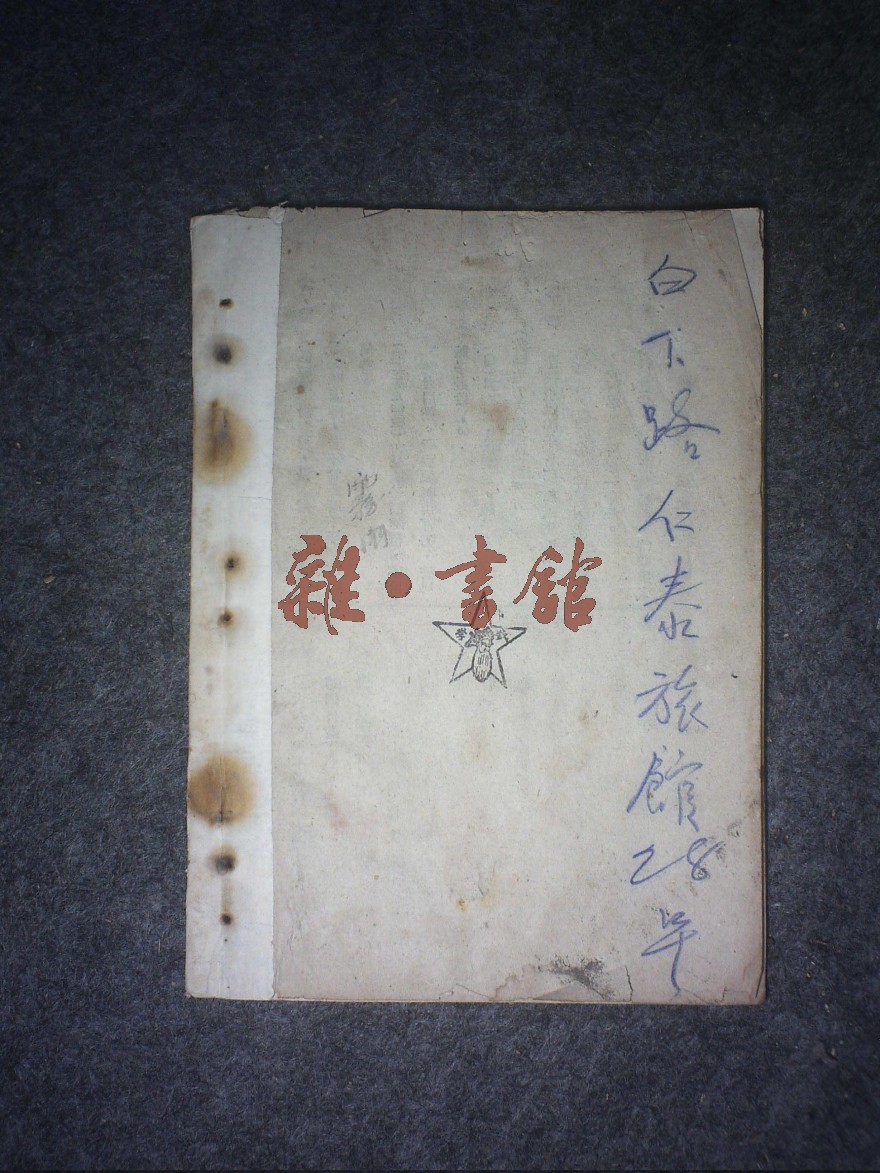 白下路仁泰旅館28号
霧
雜·書館